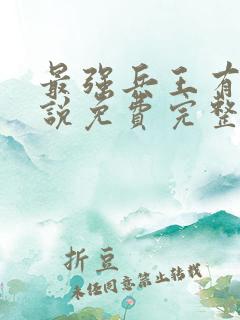 最强兵王有
说免费完整
折豆
未经同意禁止转载